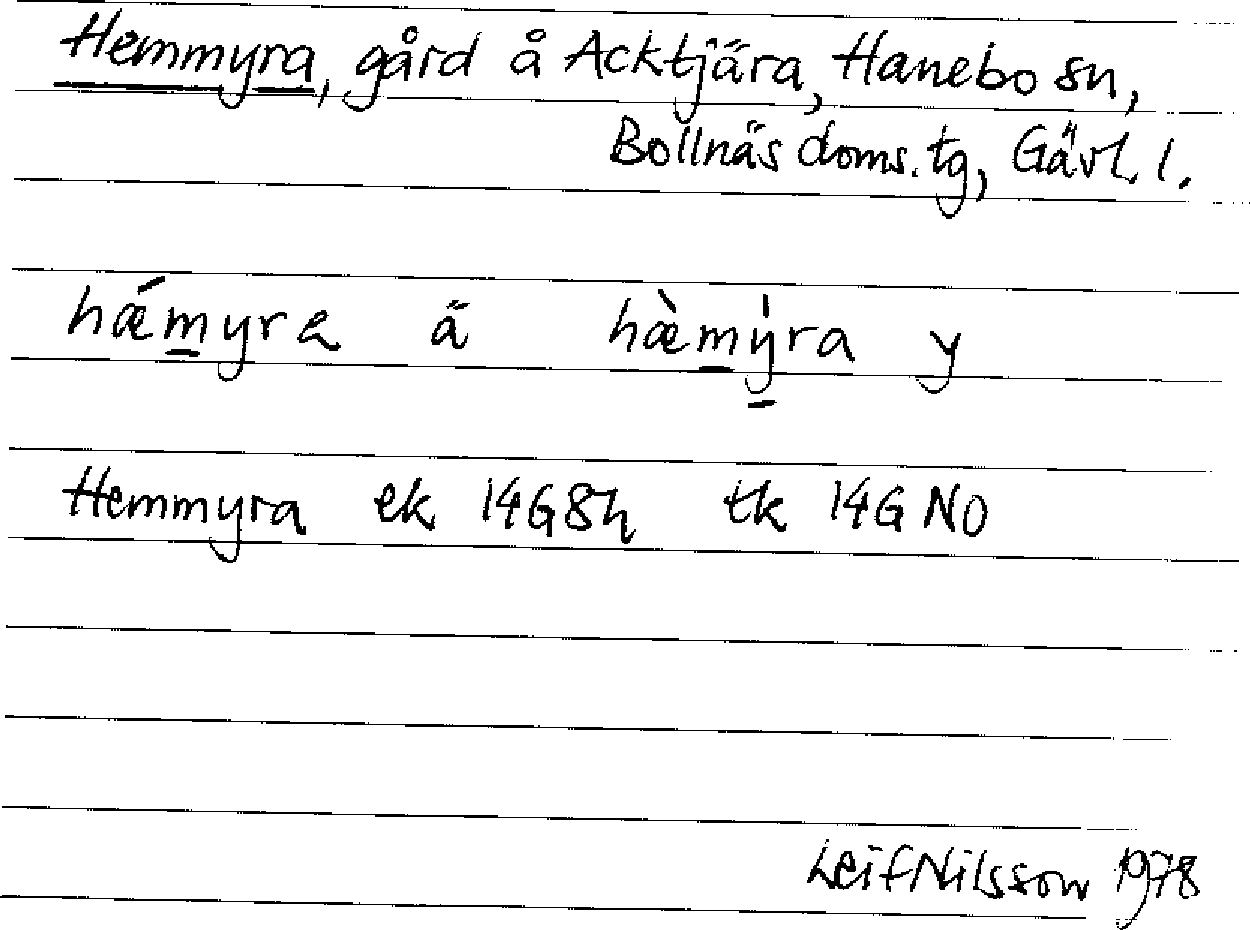 Hemmyra, gård å Acktjära, Hanebo sn,
Bollnäs doms. tg, Gävl. l.
hǽmyra ä hæ̀mýra y
Hemmyra ek 14G8h tk 14G NO
Leif Nilsson 1978